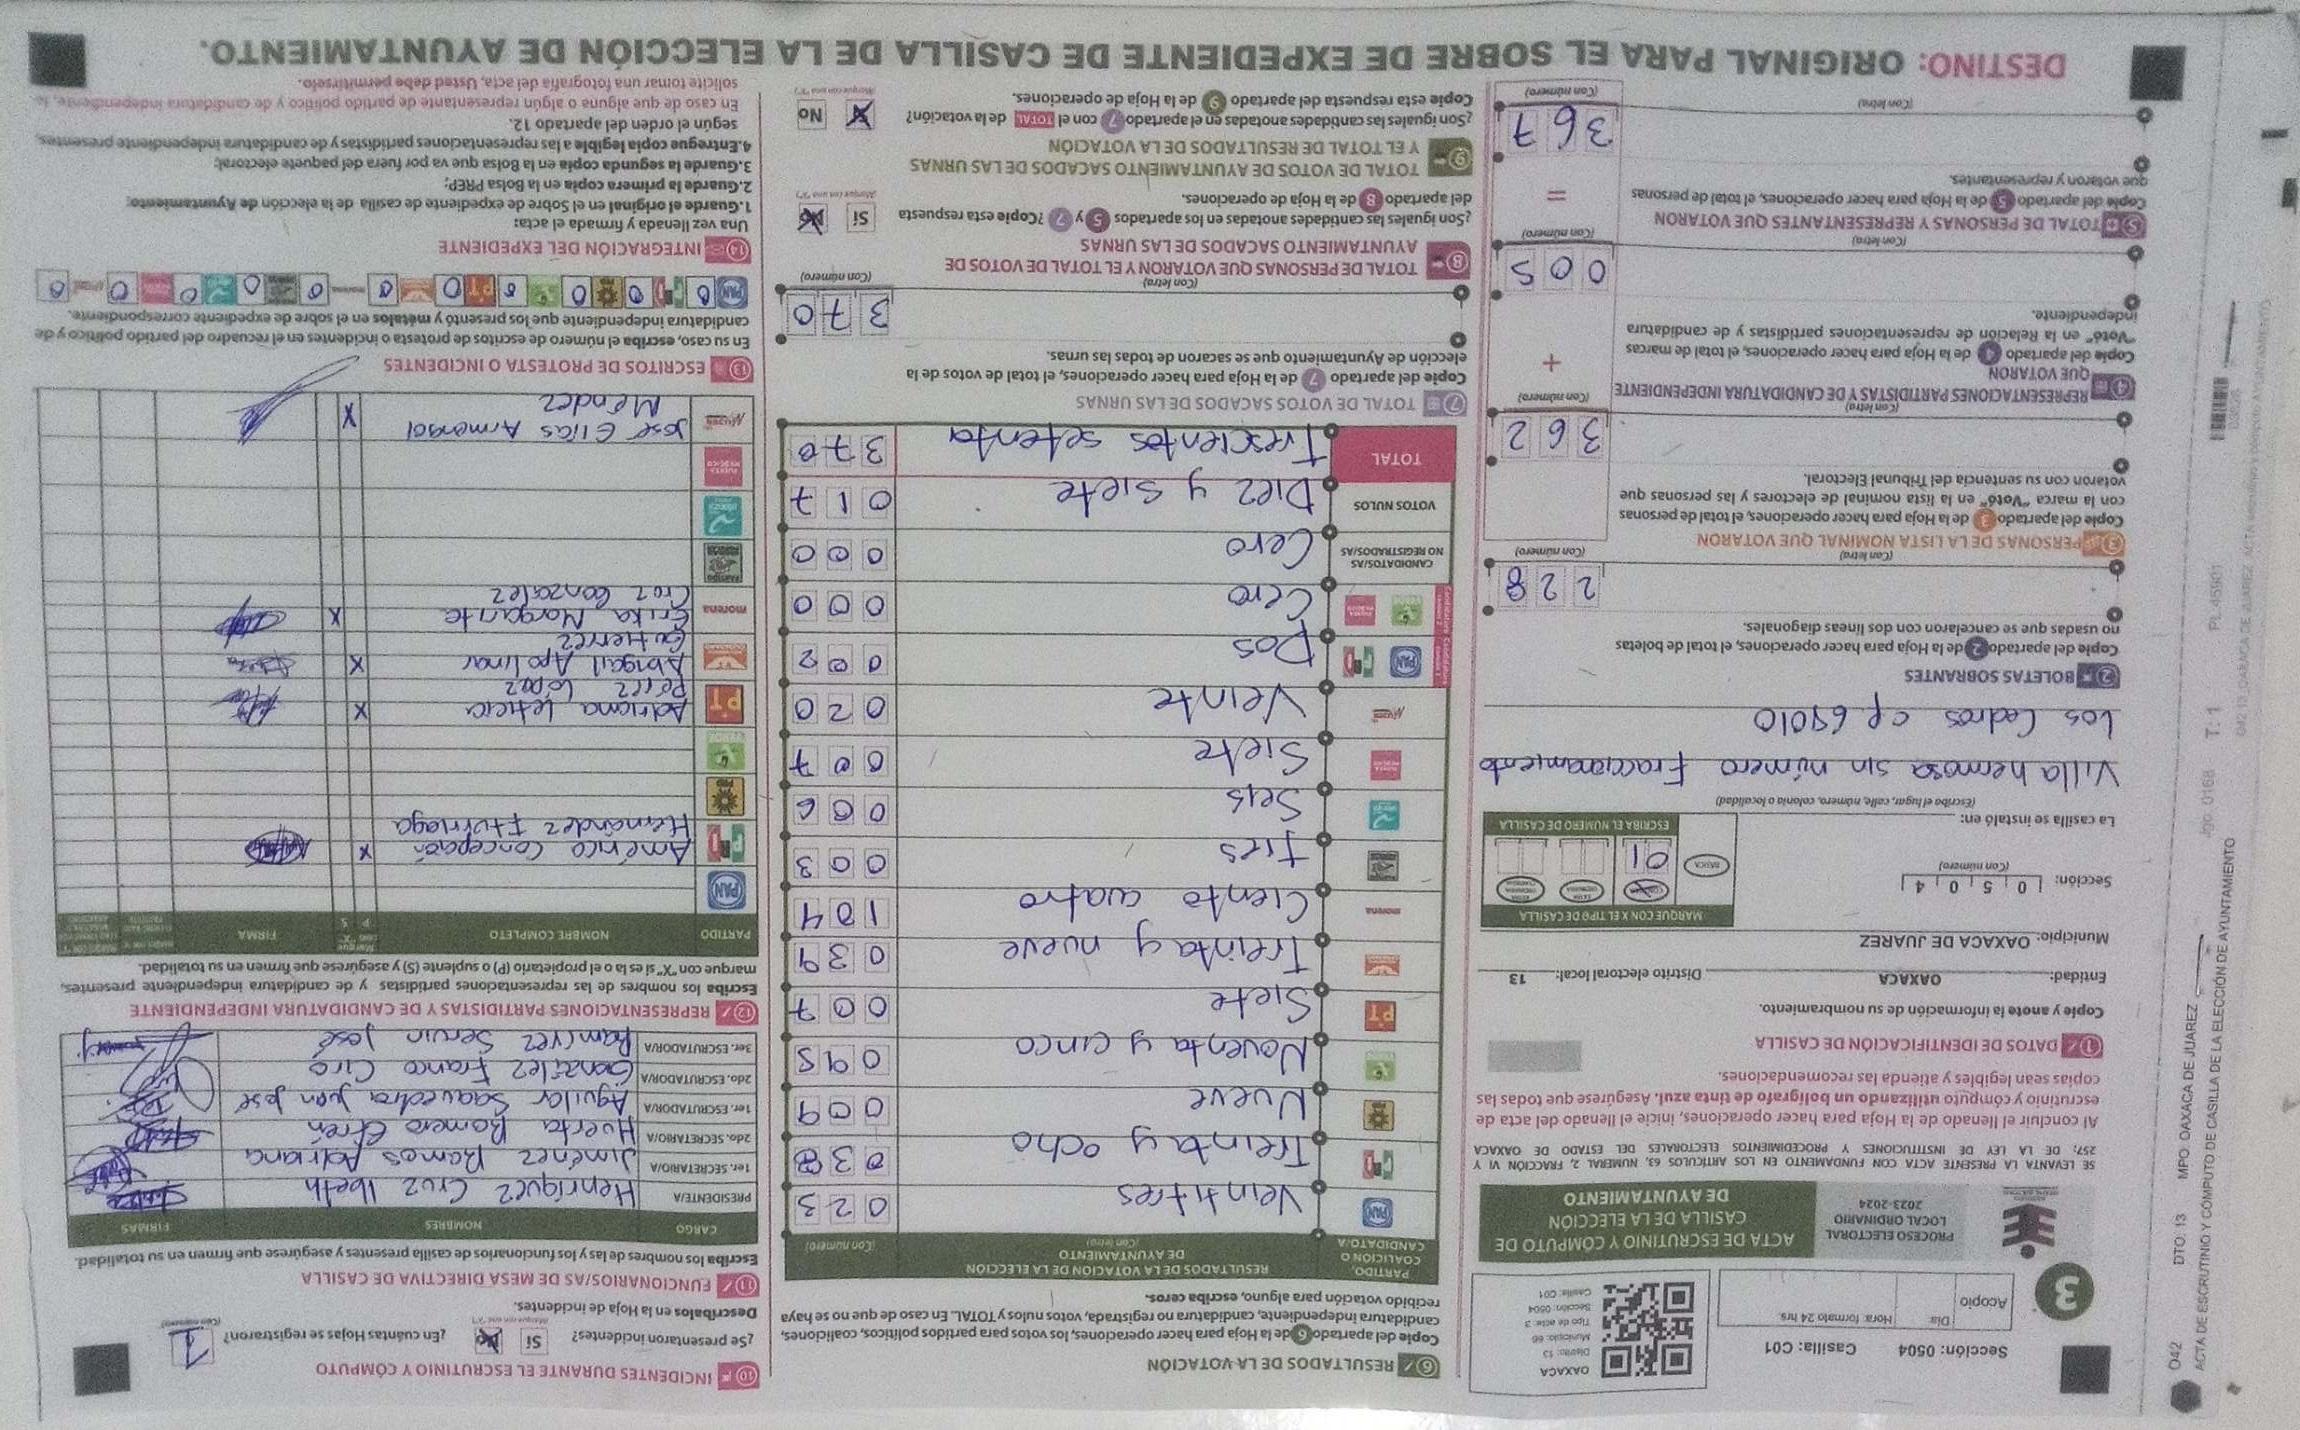 Sección: 0504 Casilla: C01
Acopio
Día: Hora: formato 24 hrs.
OAXACA
Distrito: 13
Municipio: 66
Tipo de acta: 3
Sección: 0504
Casilla: C01
3
PROCESO ELECTORAL
LOCAL ORDINARIO
2023-2024
ACTA DE ESCRUTINIO Y CÓMPUTO DE
CASILLA DE LA ELECCIÓN
DE AYUNTAMIENTO
SE LEVANTA LA PRESENTE ACTA CON FUNDAMENTO EN LOS ARTÍCULOS 63, NUMERAL 2, FRACCIÓN VI Y
257; DE LA LEY DE INSTITUCIONES Y PROCEDIMIENTOS ELECTORALES DEL ESTADO DE OAXACA
Al concluir el llenado de la Hoja para hacer operaciones, inicie el llenado del acta de
escrutinio y cómputo utilizando un bolígrafo de tinta azul. Asegúrese que todas las
copias sean legibles y atienda las recomendaciones.
1 DATOS DE IDENTIFICACIÓN DE CASILLA
Copie y anote la información de su nombramiento.
Entidad: OAXACA Distrito electoral local: 13
Municipio: OAXACA DE JUAREZ
Sección: 0 5 0 4
(Con número)
MARQUE CON X EL TIPO DE CASILLA
BÁSICA
01
ESCRIBA EL NÚMERO DE CASILLA
La casilla se instaló en:
(Escriba el lugar, calle, número, colonia o localidad)
Villa hermosa sin número Fraccionamiento
Los Cedros cp 69010
2 BOLETAS SOBRANTES
Copie del apartado 2 de la Hoja para hacer operaciones, el total de boletas
no usadas que se cancelaron con dos líneas diagonales.
2 2 8
(Con letra) (Con número)
3 PERSONAS DE LA LISTA NOMINAL QUE VOTARON
Copie del apartado 3 de la Hoja para hacer operaciones, el total de personas
con la marca "Votó" en la lista nominal de electores y las personas que
votaron con su sentencia del Tribunal Electoral.
3 6 2
(Con letra) (Con número)
4 REPRESENTACIONES PARTIDISTAS Y DE CANDIDATURA INDEPENDIENTE
QUE VOTARON
Copie del apartado 4 de la Hoja para hacer operaciones, el total de marcas
"Votó" en la Relación de representaciones partidistas y de candidatura
independiente.
+
0 0 5
(Con letra) (Con número)
5 TOTAL DE PERSONAS Y REPRESENTANTES QUE VOTARON
Copie del apartado 5 de la Hoja para hacer operaciones, el total de personas
que votaron y representantes.
=
3 6 7
(Con letra) (Con número)
6 RESULTADOS DE LA VOTACIÓN
Copie del apartado 6 de la Hoja para hacer operaciones, los votos para partidos políticos, coaliciones,
candidatura independiente, candidatura no registrada, votos nulos y TOTAL. En caso de que no se haya
recibido votación para alguno, escriba ceros.
PARTIDO, COALICIÓN O CANDIDATO/A
RESULTADOS DE LA VOTACIÓN DE LA ELECCIÓN
DE AYUNTAMIENTO
(Con letra) (Con número)
PAN Veintitres 0 2 3
PRI Treinta y ocho 0 3 8
PRD Nueve 0 0 9
VERDE Noventa y cinco 0 9 5
PT Siete 0 0 7
Treinta y nueve 0 3 9
morena Ciento cuatro 1 0 4
tres 0 0 3
Seis 0 0 6
Siete 0 0 7
MUJER Veinte 0 2 0
PAN PRI Dos 0 0 2
Cero 0 0 0
CANDIDATOS/AS
NO REGISTRADOS/AS Cero 0 0 0
VOTOS NULOS Diez y siete 0 1 7
TOTAL Trescientos setenta 3 7 0
7 TOTAL DE VOTOS SACADOS DE LAS URNAS
Copie del apartado 7 de la Hoja para hacer operaciones, el total de votos de la
elección de Ayuntamiento que se sacaron de todas las urnas.
3 7 0
(Con letra) (Con número)
8 TOTAL DE PERSONAS QUE VOTARON Y EL TOTAL DE VOTOS DE
AYUNTAMIENTO SACADOS DE LAS URNAS
¿Son iguales las cantidades anotadas en los apartados 5 y 7? Copie esta respuesta
del apartado 8 de la Hoja de operaciones.
Sí No
(Marque con una "X")
9 TOTAL DE VOTOS DE AYUNTAMIENTO SACADOS DE LAS URNAS
Y EL TOTAL DE RESULTADOS DE LA VOTACIÓN
¿Son iguales las cantidades anotadas en el apartado 7 con el TOTAL de la votación?
Copie esta respuesta del apartado 9 de la Hoja de operaciones.
Sí No
(Marque con una "X")
10 INCIDENTES DURANTE EL ESCRUTINIO Y CÓMPUTO
¿Se presentaron incidentes? Sí No ¿En cuántas Hojas se registraron? 1
(Marque con una "X") (Con número)
Descríbalos en la Hoja de incidentes.
11 FUNCIONARIOS/AS DE MESA DIRECTIVA DE CASILLA
Escriba los nombres de las y los funcionarios de casilla presentes y asegúrese que firmen en su totalidad.
CARGO NOMBRES FIRMAS
PRESIDENTE/A Henríquez Cruz Ibeth
1er. SECRETARIO/A Jiménez Ramos Adriana
2do. SECRETARIO/A Huerta Romero Efrén
1er. ESCRUTADOR/A Aguilar Saavedra Juan José
2do. ESCRUTADOR/A González Franco Ciro
3er. ESCRUTADOR/A Ramírez Servin José
12 REPRESENTACIONES PARTIDISTAS Y DE CANDIDATURA INDEPENDIENTE
Escriba los nombres de las representaciones partidistas y de candidatura independiente presentes,
marque con "X" si es la o el propietario (P) o suplente (S) y asegúrese que firmen en su totalidad.
PARTIDO NOMBRE COMPLETO P S FIRMA
PAN
PRI Américo Concepción X
Hernández Iturriaga
PRD
VERDE
PT Adriana Leticia X
Pérez López
Abigail Apolinar X
Gutiérrez
morena Erika Margarita X
Cruz González
MUJER José Elías Armengol X
Méndez
13 ESCRITOS DE PROTESTA O INCIDENTES
En su caso, escriba el número de escritos de protesta o incidentes en el recuadro del partido político y de
candidatura independiente que los presentó y métalos en el sobre de expediente correspondiente.
PAN 0 PRI 0 PRD 0 VERDE 0 PT 0 0 morena 0 0 0 0 0
14 INTEGRACIÓN DEL EXPEDIENTE
Una vez llenada y firmada el acta:
1.Guarde el original en el Sobre de expediente de casilla de la elección de Ayuntamiento;
2.Guarde la primera copia en la Bolsa PREP;
3.Guarde la segunda copia en la Bolsa que va por fuera del paquete electoral;
4.Entregue copia legible a las representaciones partidistas y de candidatura independiente presentes,
según el orden del apartado 12.
En caso de que alguna o algún representante de partido político y de candidatura independiente, le
solicite tomar una fotografía del acta, Usted debe permitírselo.
DESTINO: ORIGINAL PARA EL SOBRE DE EXPEDIENTE DE CASILLA DE LA ELECCIÓN DE AYUNTAMIENTO.
O42 DTO: 13 MPO. OAXACA DE JUAREZ T: 1
ACTA DE ESCRUTINIO Y CÓMPUTO DE CASILLA DE LA ELECCIÓN DE AYUNTAMIENTO